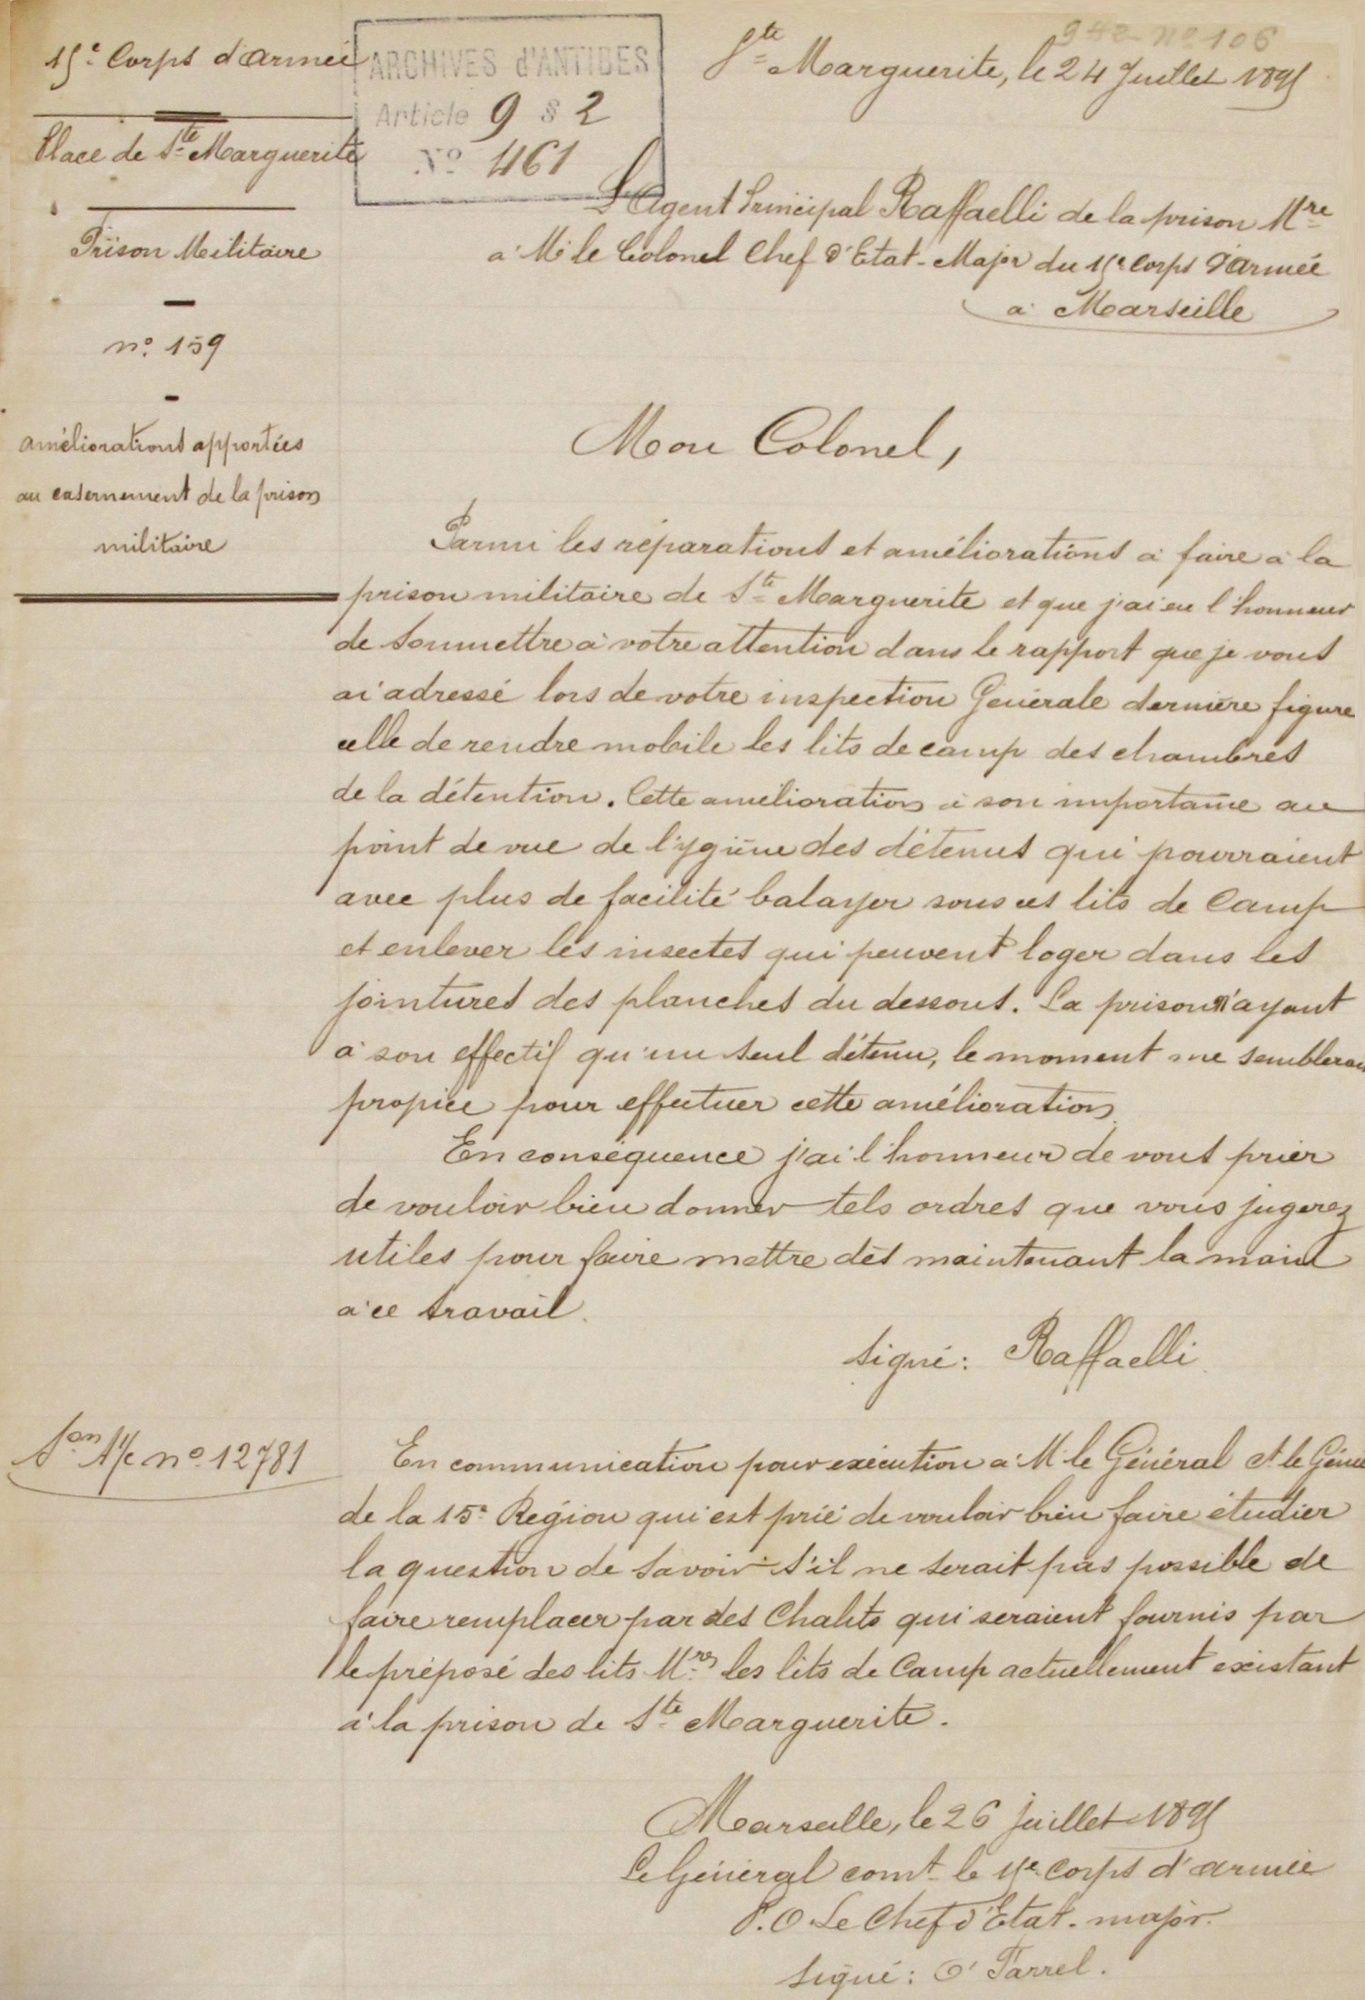 15e Corps d'Armée
Place de Ste Marguerite
Prison Militaire
n° 159
améliorations apportées
au casernement de la prison
militaire
ARCHIVES d'ANTIBES
Article 9 § 2
N° 461
942 n° 106
Ste Marguerite, le 24 Juillet 1895
L'Agent Principal Raffaelli de la prison Mre
à Mr le Colonel Chef d'Etat-Major du 15e Corps d'Armée
à Marseille
Mon Colonel,
Parmi les réparations et améliorations à faire à la
prison militaire de Ste Marguerite et que j'ai eu l'honneur
de soumettre à votre attention dans le rapport que je vous
ai adressé lors de votre inspection Générale dernière figure
celle de rendre mobile les lits de camp des chambres
de la détention. Cette amélioration à son importance au
point de vue de l'ygiène des détenus qui pourraient
avec plus de facilité balayer sous ces lits de Camp
et enlever les insectes qui peuvent loger dans les
jointures des planches du dessous. La prison n'ayant
à son effectif qu'un seul détenu, le moment me semblerai
propice pour effectuer cette amélioration.
En conséquence j'ai l'honneur de vous prier
de vouloir bien donner tels ordres que vous jugerez
utiles pour faire mettre dès maintenant la main
à ce travail.
signé: Raffaelli
Son A/c n° 12781
En communication pour exécution à Mr le Général Ct le Génie
de la 15e Région qui est prié de vouloir bien faire étudier
la question de savoir s'il ne serait pas possible de
faire remplacer par des Chalits qui seraient fournis par
le préposé des lits Mres les lits de Camp actuellement existant
à la prison de Ste Marguerite.
Marseille, le 26 juillet 1895
Le Général comt le 15e Corps d'armée
P.O. Le Chef d'Etat-major.
signé: O'Farrel.